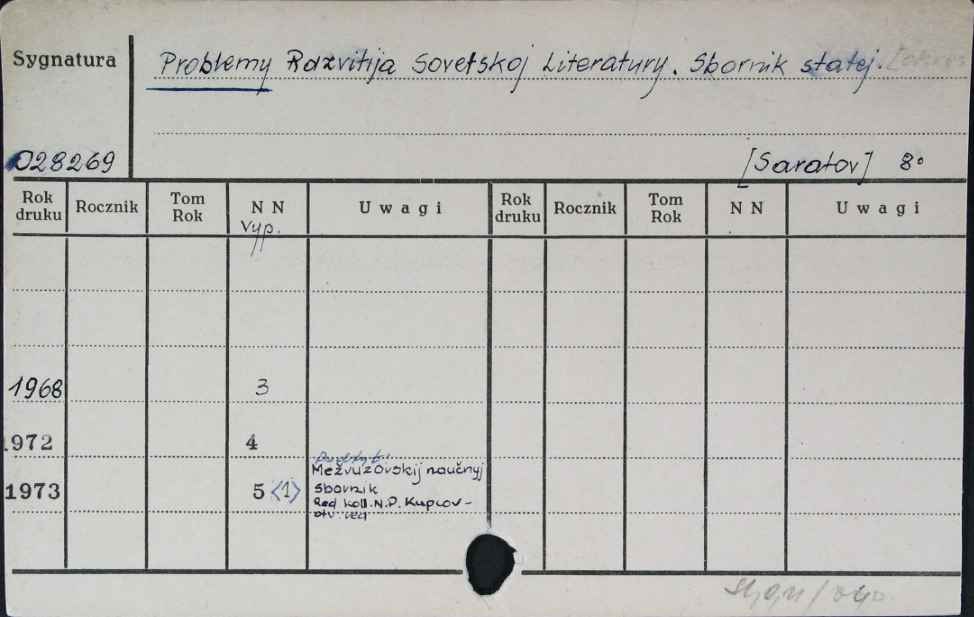 Sygnatura
Problemy Razvitija Sovetskoj Literatury. Sbornik statej.
028269
[Saratov] 8°
Rok druku Rocznik Tom Rok N N Uwagi Rok druku Rocznik Tom Rok N N Uwagi
Vyp.
1968 3
1972 4
Mežvuzovskij naučnyj
1973 5 <1> sbornik
Red koll. N.P. Kupcov -
otv red